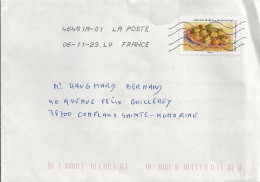 46451A-01 LA POSTE
06-11-23.LV FRANCE
Mr HAUGMARD BERNARD
40 AVENUE FÉLIX GUILLEREY
78700 CONFLANS SAINTE-HONORINE